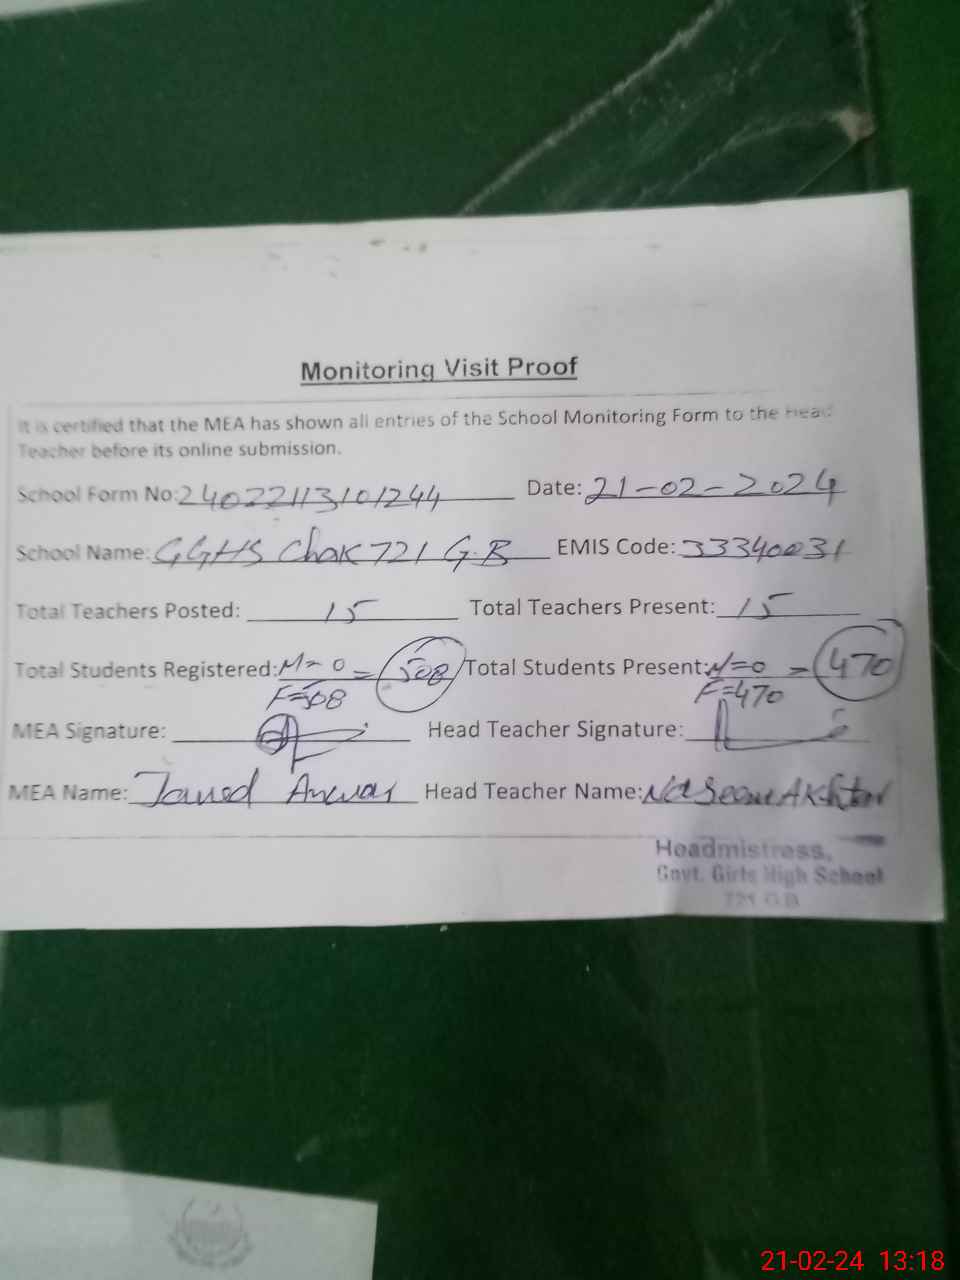 Monitoring Visit Proof
It is certified that the MEA has shown all entries of the School Monitoring Form to the Head
Teacher before its online submission.
School Form No: 24022113101244 Date: 21-02-2024
School Name: GGHS Chak 721 G.B EMIS Code: 33340031
Total Teachers Posted: 15 Total Teachers Present: 15
Total Students Registered: M=0 = 508 Total Students Present: M=0 = 470
F=508 F=470
MEA Signature: Head Teacher Signature:
MEA Name: Javed Anwar Head Teacher Name: Naseem Akhtar
Headmistress,
Govt. Girls High School
721 G.B
21-02-24 13:18